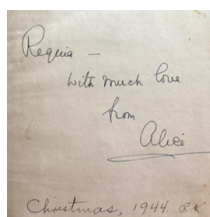 Requia —
with much love
from
Alice
Christmas, 1944. RK